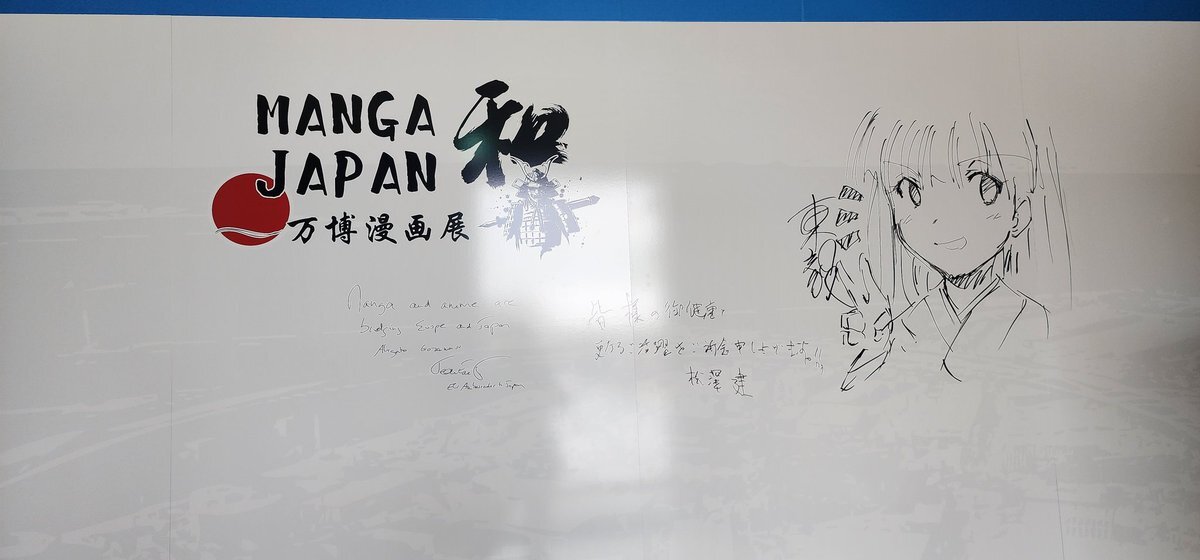 MANGA
JAPAN
和
万博漫画展
Manga and anime are
bridging Europe and Japan
EU Ambassador to Japan
皆様の御健康と
更なるご活躍をご祈念申し上げます
松澤 建